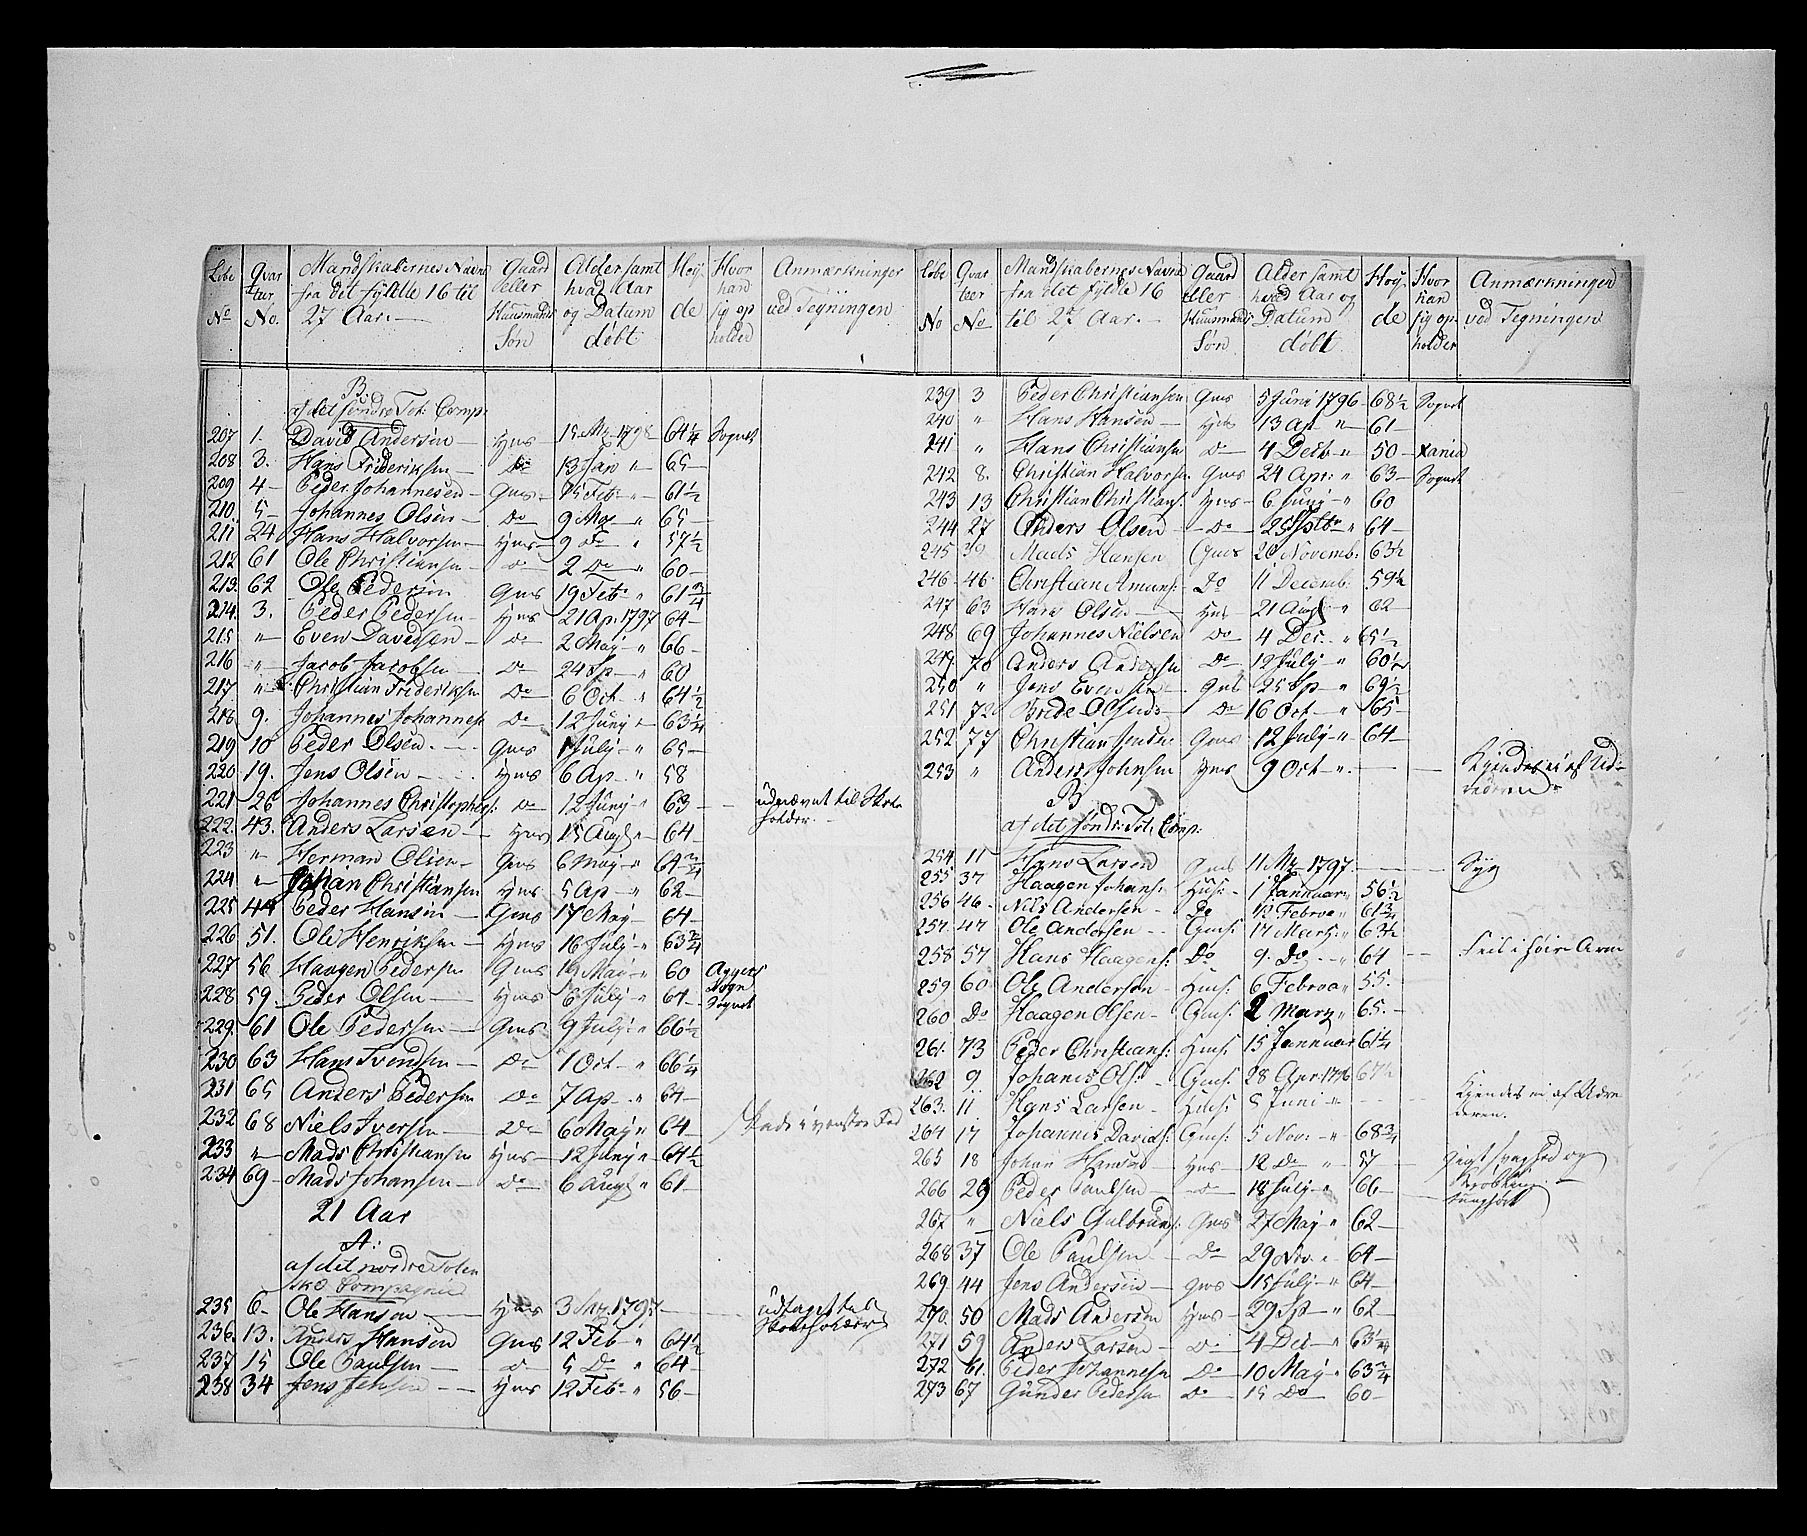 Løbe No | Qvarteer No. | Mandskabernes Navne fra det fyldte 16 til 27 Aar. | Gaard eller Huusmands Søn | Alder samt hvad Aar og Datum døbt | Høyde | Hvor han sig opholder | Anmærkninger ved Tegningen
B:
af det søndre Tot: Comp:
207 1. David Andersen Hms 15 Mz 1798 64 1/4 Sognet
208 3. Hans Frideriksen Do 13 Jan " 65
209 4 Peder Johannesen Gms 15 Feb " 61 1/2
210. 5 Johannes Olsen Do 9 Mz " 65
211 24 Hans Halvorsen Hms 9 Do " 57 1/2
212 61 Ole Christiansen Do 2 Do " 60
213. 62 Ole Pedersen Gms 19 Feb " 61 3/4
214. 3. Peder Pedersen Hms 21 Ap. 1797 64
215 " Even Davidsen Do 2 May " 66
216 " Jacob Jacobsen Do 24 Sp " 60
217 " Christian Frideriksen Do 6 Oct " 64 1/2
218 9. Johannes Johannes Do 12 Juny " 63 1/4
219 10 Peder Olsen Gms July " 65
220 19. Jens Olsen Hms 6 Ap " 58
221 26 Johannes Christophers: Do 12 Juny " 63 udnævnt til Skoleholder
222. 43. Anders Larsen Hms 15 Aug " 64
223 " Herman Olsen Gms 6 May " 64 3/4
224 " Johan Christiansen Hms 5 Ap " 62
225 44 Peder Hansen Gms 17 May 64
226 51. Ole Henriksen Hms 16 July " 63 3/4
227 56 Haagen Pedersen Gms 16 May " 60 Aggers Sogn
228 59. Peder Olsen Hms 6 July " 64 Sognet
229. 61 Ole Pedersen Gms 9 July " 66 1/2
230 63 Hans Svendsen Do 1 Oct " 66 1/4
231 65 Anders Pedersen Do 7 Ap " 64
232 68 Niels Iversen Do 6 May " 64 skade i venstre Fod
233 " Mads Christiansen Hms 12 Juny " 64 1/2
234 69 Mads Johansen Do 6 Aug " 61
21 Aar
A:
af det nordre Toten
ske Compagnie
235 6 Ole Hansen Hms 3 Mz. 1797 udtaget til Skoleholder
236. 13. Anders Hansen Gms 12 Feb " 64 1/2
237 15 Ole Paulsen Do 5 Do " 64
238 34 Jens Jensen Hms 12 Feb " 56
Løbe No | Qvarteer No | Mandskabernes Navne fra det fyldte 16 til 27 Aar. | Gaard eller Huusmands Søn | Alder samt hvad Aar og Datum døbt | Høyde | Hvor han sig opholder | Anmærkninger ved Tegningen
239 3 Peder Christiansen Gms 5 Juni 1796 68 1/2 Sognet
240 " Hans Hansen Hms 13 Ap " 61
241 " Hans Christiansen Do 4 Decb " 50 Xania
242 8. Christian Halvorsen Gms 24 Apr: " 63 Sognet
243 13 Christian Christians: Hms 6 Juny " 60
244 27 Anders Olsen Do 25 " 64
245 39 Mads Hansen Gms 20 Novemb: 63 1/2
246 46 Christian Amuns: Do 11 Decemb: 59 1/2
247 63 Hans Olsen Hms 21 Aug " 62
248 69 Johannes Nielsen Do 4 Dec. " 65 1/2
249. 70 Anders Andersen Do 12 July " 60 1/2
250 " Jens Evensen Gms 25 Sp " 69 1/2
251 72 Brede Olsen Do 16 Oct " 65
252 77 Christian Gms 12 July " 64
253 " Anders Johnsen Hms 9 Oct " Kjendes ei af Udrederen
B
af det søndr: Tot: Comp:
254 11 Hans Larsen Gms 11 Mz 1797. Syg
255 37 Haagen Johans: Hus: 1 Januar " 56 1/2
256 46 Nils Andersen Do 12 Februa " 61 3/4
257. 47 Ole Andersen Gms: 17 Mart: " 63 1/2
258 57 Hans Haagens: Do 9. Do " 64 Feil i høire Arm
259 60 Ole Andersen Hms: 6 Februa " 55.
260 Do Haagen Olsen Gms: 2 Marz " 65.
261. 73 Peder Christians: Hms: 15 Januar 61 1/4
262 9 Johanes Ols: Gms: 28 Apr: 1796 67 1/2
263. 11 Hans Larsen Hms: 8 Juni " Kjendes ei af Udrederen.
264 17 Johannes Davids: Gms: 5 Nov: " 68 3/4
265 18 Johan Hansen Hms 12 Do " 57 Gigt svaghed og
266 29 Peder Paulsen Do 18 July " 66 tunghørt
267 " Niels Gulbrans: Gms 27 May " 62
268 37 Ole Paulsen Do 29 Nov " 64
269 44 Jens Andersen Gms 15 July " 64
270. 50 Mads Andersen Hms 29 Sp " 62
271 59 Anders Larsen Do 4 Dec " 63 1/4
272 61. Peder Johannesen Do 10 May " 63 3/4
273 67 Gunder Pedersen Do 15 Do 60